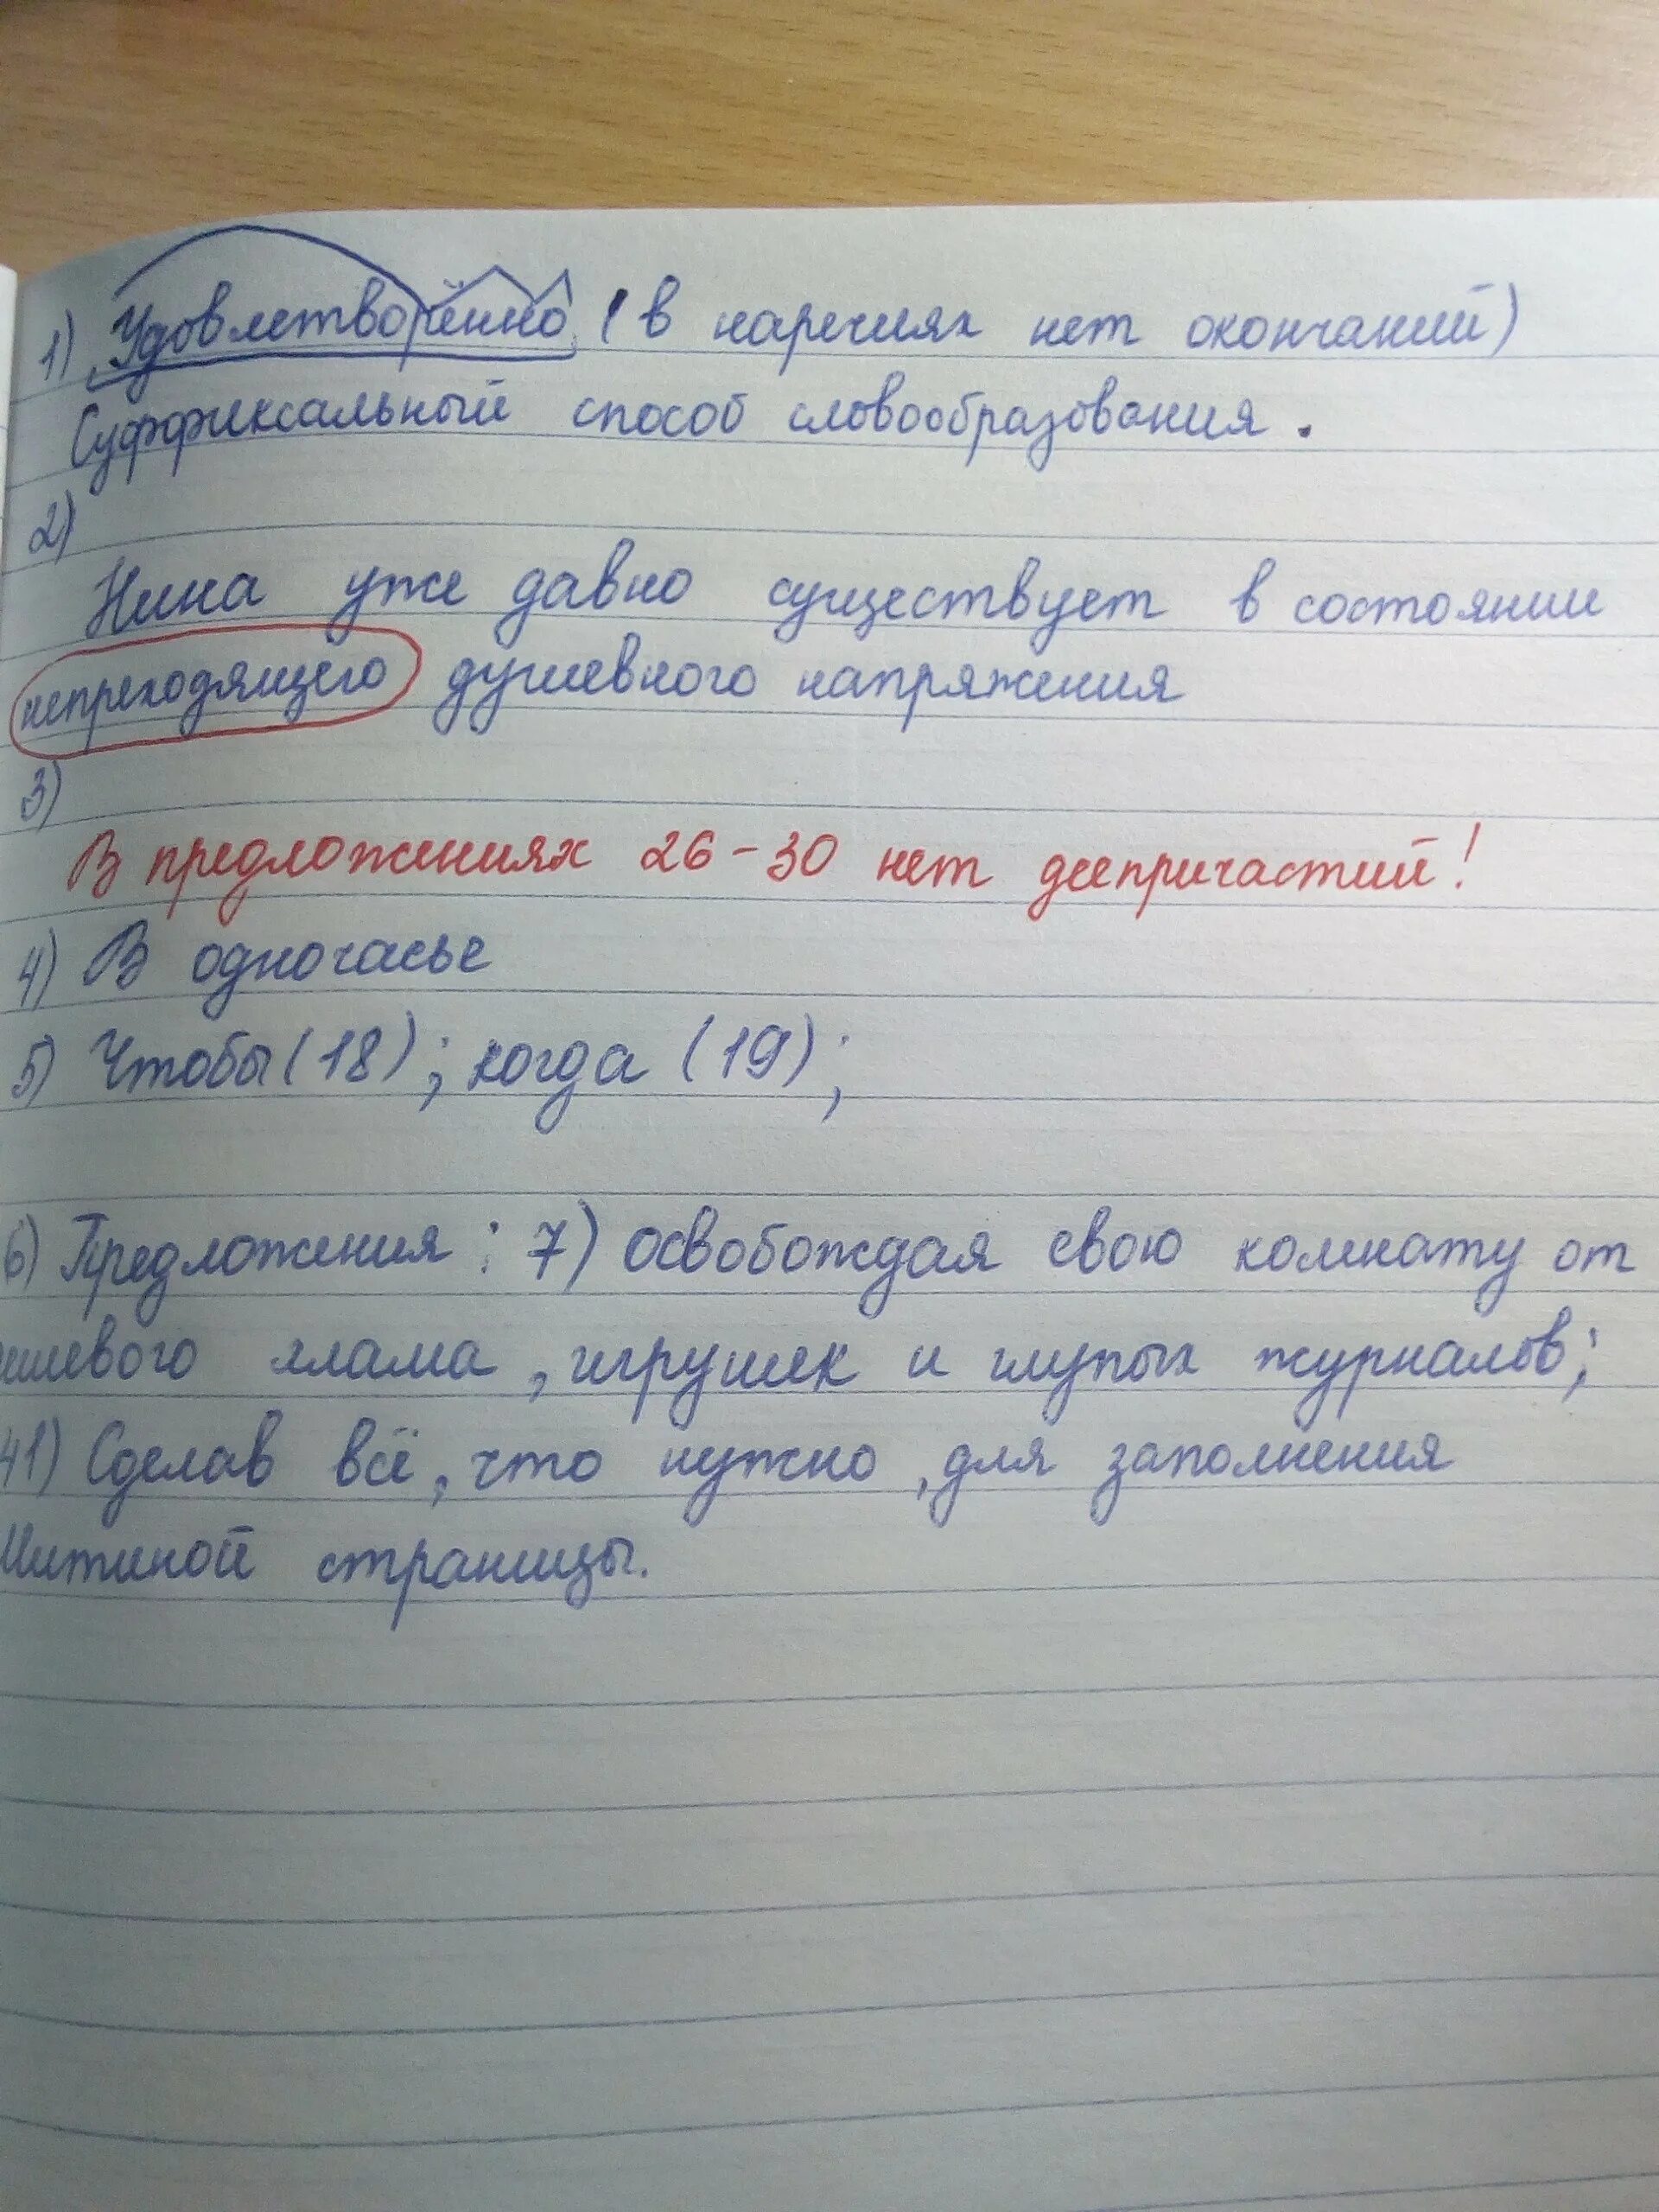 1) Удовлетворённо (в наречиях нет окончаний)
Суффиксальный способ словообразования.
2)
Нина уже давно существует в состоянии
непреходящего душевного напряжения
3)
В предложениях 26-30 нет деепричастий!
4) В одночасье
5) Чтобы (18); когда (19);
6) Предложения: 7) Освобождая свою комнату от
хлама, игрушек и глупых журналов;
41) Сделав всё, что нужно, для заполнения
Митиной страницы.